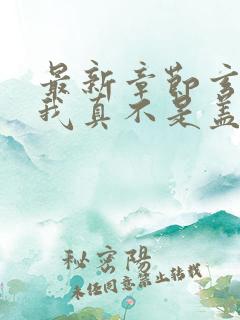 最新章节玄
我真不是盖
秘密阳
未经同意禁止转载